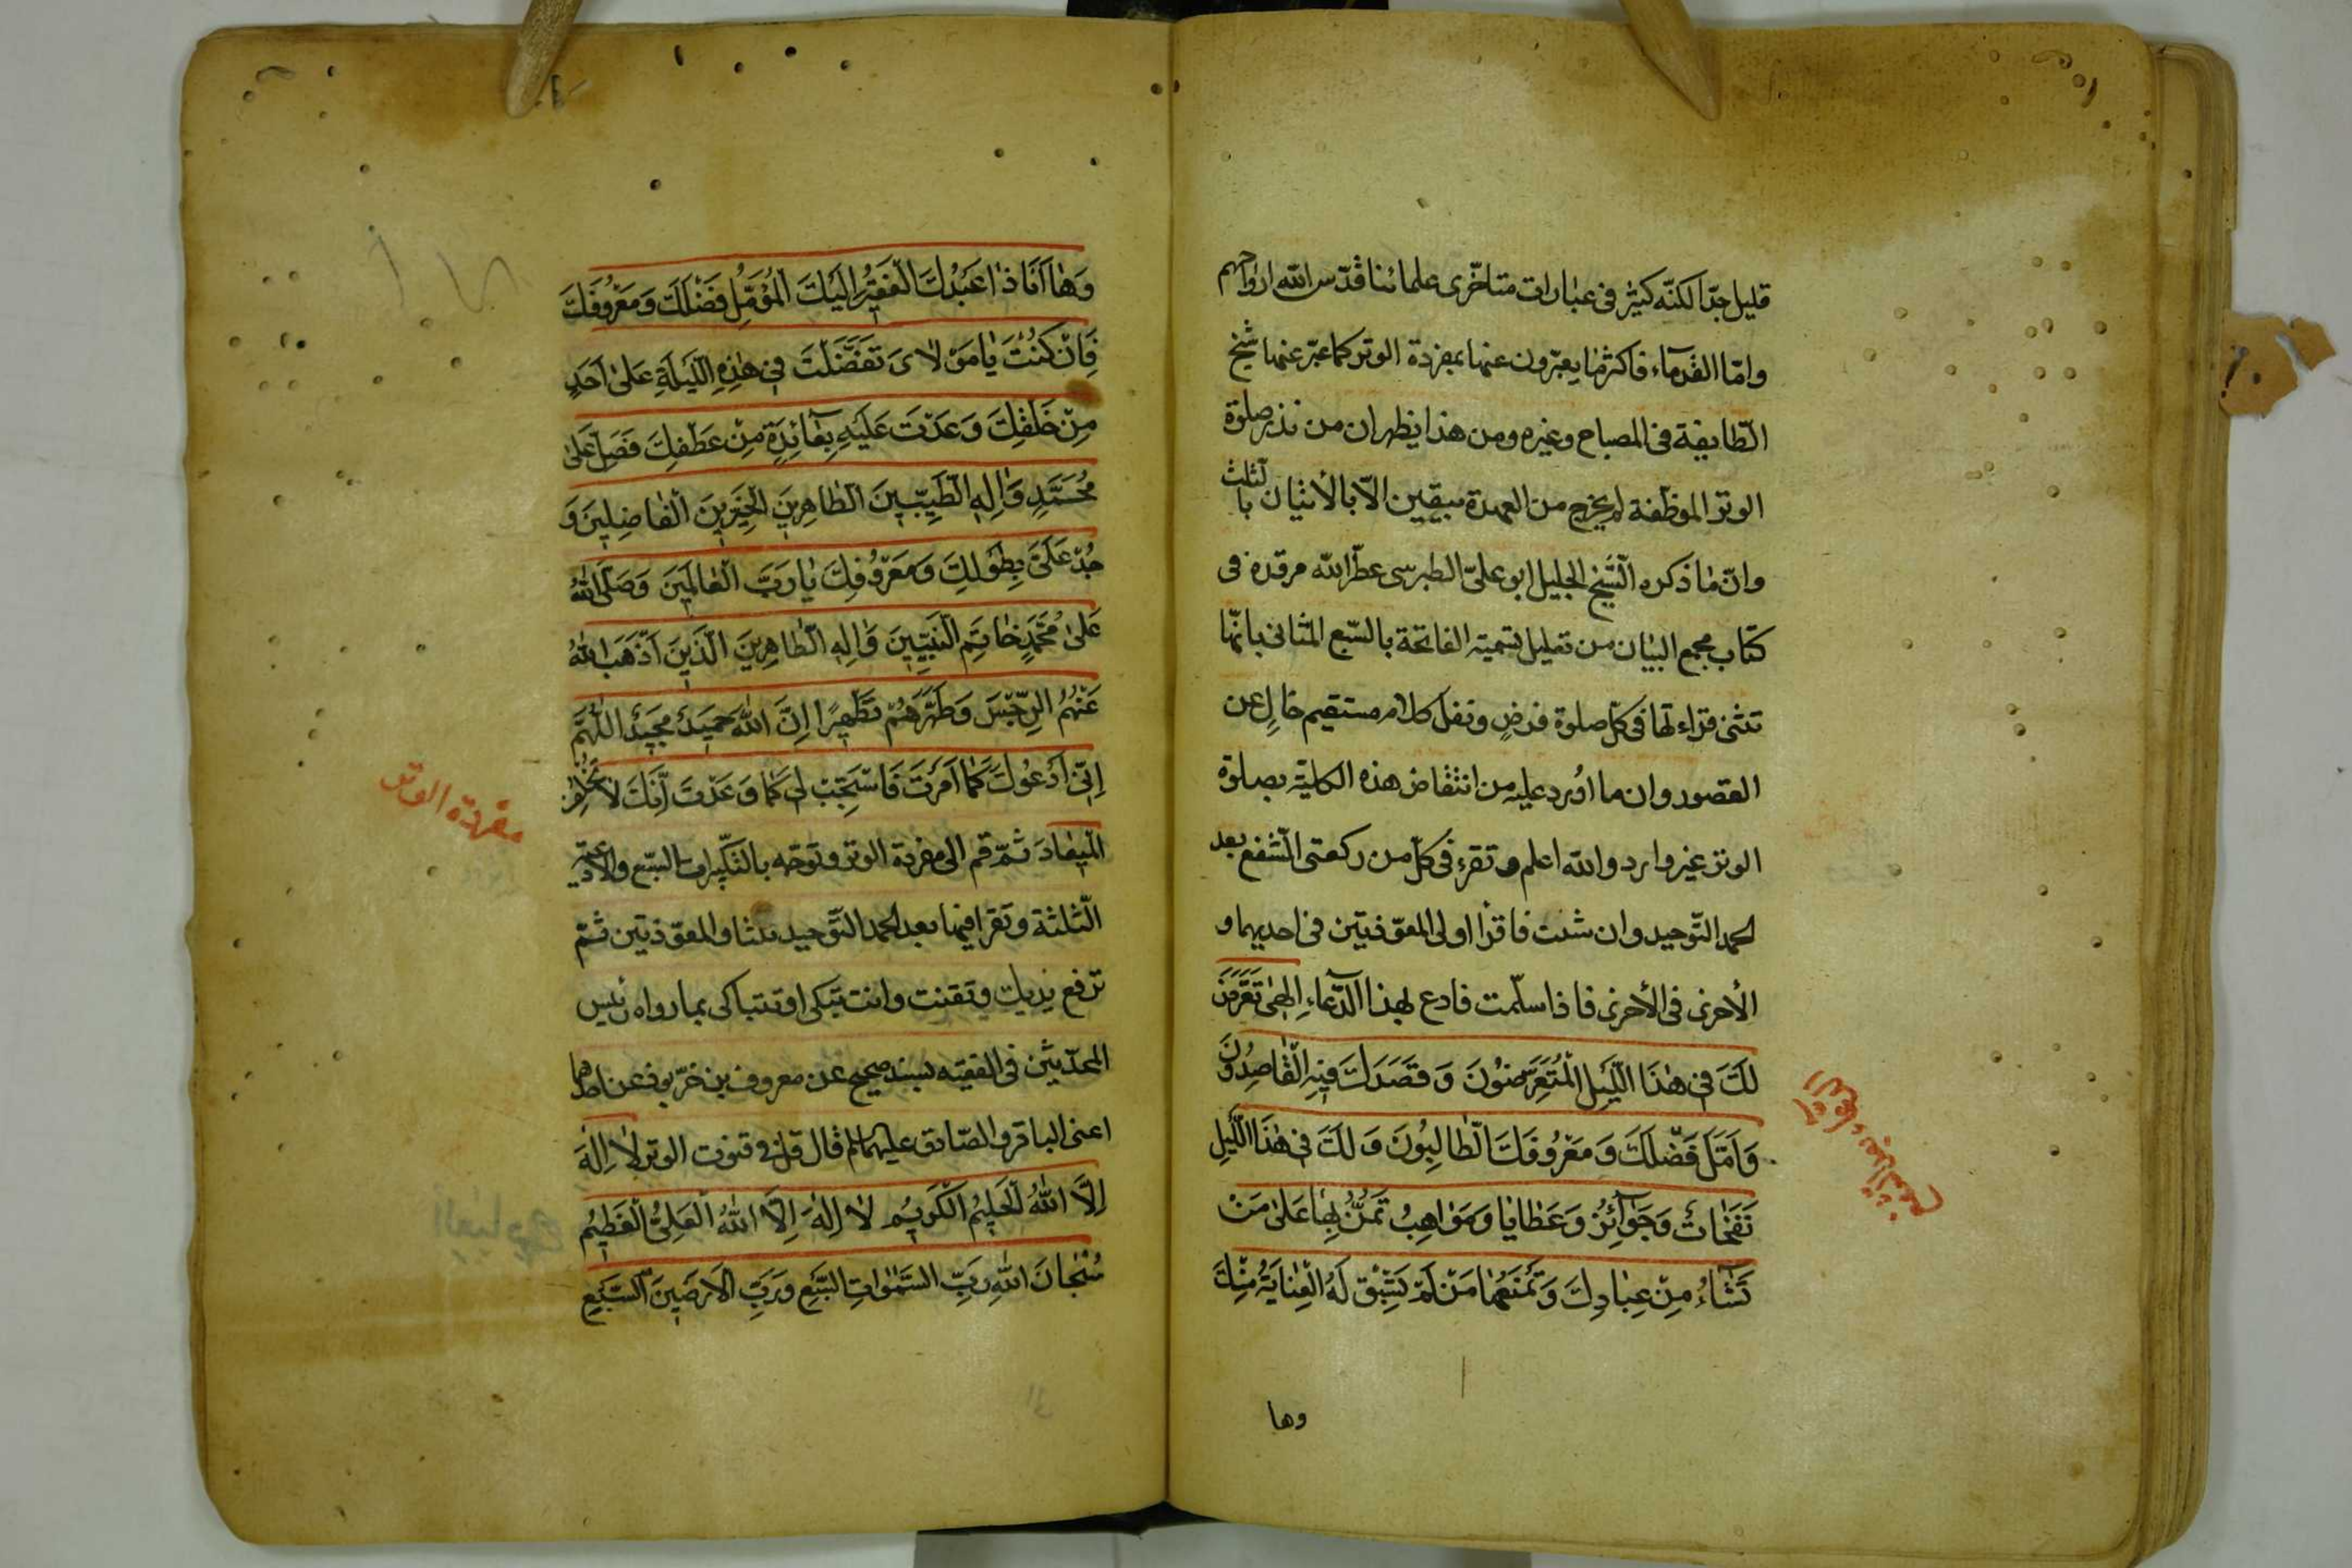 قليل جدّا لكنّه كثير فى عبارات متاخّرى علمائنا قدّس الله ارواحهم
وامّا القدمآء فاكثر ما يعبّرون عنها بمفردة الوتر كما عبّر عنها شيخ
الطّايفة فى المصباح وغيره ومن هذا يظهر ان من نذر صلوة
الوتر الموظّفة لم يخرج من العهدة بيقين الّا بالاتيان بالثلث
وانّ ما ذكره الشّيخ الجليل ابو علىّ الطبرسى عطّر الله مرقده فى
كتاب مجمع البيان من تعليل تسمية الفاتحة بالسّبع المثانى بانّها
تثنى قراءتها فى كلّ صلوة فرض ونفل كلام مستقيم خالٍ عن
القصور وان ما اُورد عليه من انتقاض هذه الكلية بصلوة
الوتر غير وارد والله اعلم وتقرء فى كلّ من ركعتى الشّفع بعد
الحمد التّوحيد وان شئت فاقرا اولى المعوّذتين فى احديهما و
الأخرى فى الأخرى فاذا سلّمت فادع بهذا الدّعاء اِلهى تَعَرَّضَ
لَكَ فى هٰذَا اللَّيْلِ الْمُتَعَرِّضُونَ وَقَصَدَكَ فيهِ الْقاصِدُونَ
وَاَمَّلَ فَضْلَكَ وَمَعْرُوفَكَ الطّالِبُونَ وَلَكَ فى هٰذَا اللَّيْلِ
نَفَحاتٌ وَجَوآئِزُ وَعَطايا وَمَواهِبُ تَمُنُّ بِها عَلىٰ مَنْ
تَشآءُ مِنْ عِبادِكَ وَتَمْنَعُها مَنْ لَمْ تَسْبِقْ لَهُ الْعِنايَةُ مِنْكَ
وها
وَها اَنَا ذا عَبْدُكَ الْفَقيرُ اِلَيْكَ الْمُؤَمِّلُ فَضْلَكَ وَمَعْرُوفَكَ
فَاِنْ كُنْتَ يا مَوْلاىَ تَفَضَّلْتَ فى هٰذِهِ اللَّيْلَةِ عَلىٰ اَحَدٍ
مِنْ خَلْقِكَ وَعُدْتَ عَلَيْهِ بِعآئِدَةٍ مِنْ عَطْفِكَ فَصَلِّ عَلىٰ
مُحَمَّدٍ وَاٰلِهِ الطَّيِّبينَ الطّاهِرينَ الْخَيِّرينَ الْفاضِلينَ وَ
جُدْ عَلَىَّ بِطَوْلِكَ وَمَعْرُوفِكَ يا رَبَّ الْعالَمينَ وَصَلَّى اللهُ
عَلىٰ مُحَمَّدٍ خاتِمِ النَّبِيّينَ وَاٰلِهِ الطّاهِرينَ الَّذينَ اَذْهَبَ اللهُ
عَنْهُمُ الرِّجْسَ وَطَهَّرَهُمْ تَطْهيرًا اِنَّ اللهَ حَميدٌ مَجيدٌ اَللّٰهُمَّ
اِنّى اَدْعُوكَ كَما اَمَرْتَ فَاسْتَجِبْ لى كَما وَعَدْتَ اِنَّكَ لا تُخْلِفُ
الْميعادَ ثمّ قم الى مفردة الوتر وتوجّه بالتكبيرات السّبع والادعية
الثّلثة وتقرا فيها بعد الحمد التّوحيد ثلثا والمعوّذتين ثمّ
ترفع يديك وتقنت وانت تبكى او تتباكى بما رواه رئيس
المحدّثين فى الفقيه بسند صحيح عن معروف بن خرّبوذ عن احدهما
اعنى الباقر والصّادق عليهما السلم قال قل فى قنوت الوتر لا اِلٰهَ
اِلَّا اللهُ الْحَليمُ الْكَريمُ لا اِلٰهَ اِلَّا اللهُ الْعَلِىُّ الْعَظيمُ
سُبْحانَ اللهِ رَبِّ السَّمٰواتِ السَّبْعِ وَرَبِّ الْاَرَضينَ السَّبْعِ
مفردة الوتر